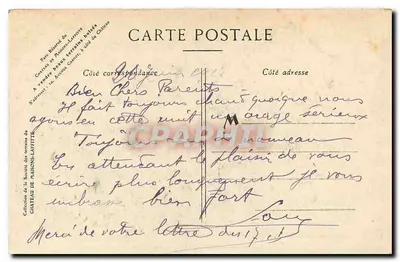 CARTE POSTALE
Côté correspondance
Côté adresse
Bien Chers Parents
Il fait toujours chaud quoique nous
ayons eu cette nuit un orage sérieux
Toujours de nouveau
En attendant le plaisir de vous
écrire plus longuement je vous
embrasse bien fort
Merci de votre lettre du 17
Parc Réservé du
Château de Maisons-Laffitte
A vendre beaux terrains boisés
Collection de la Société des Terrains du
CHATEAU DE MAISONS-LAFFITTE
CPARAMA